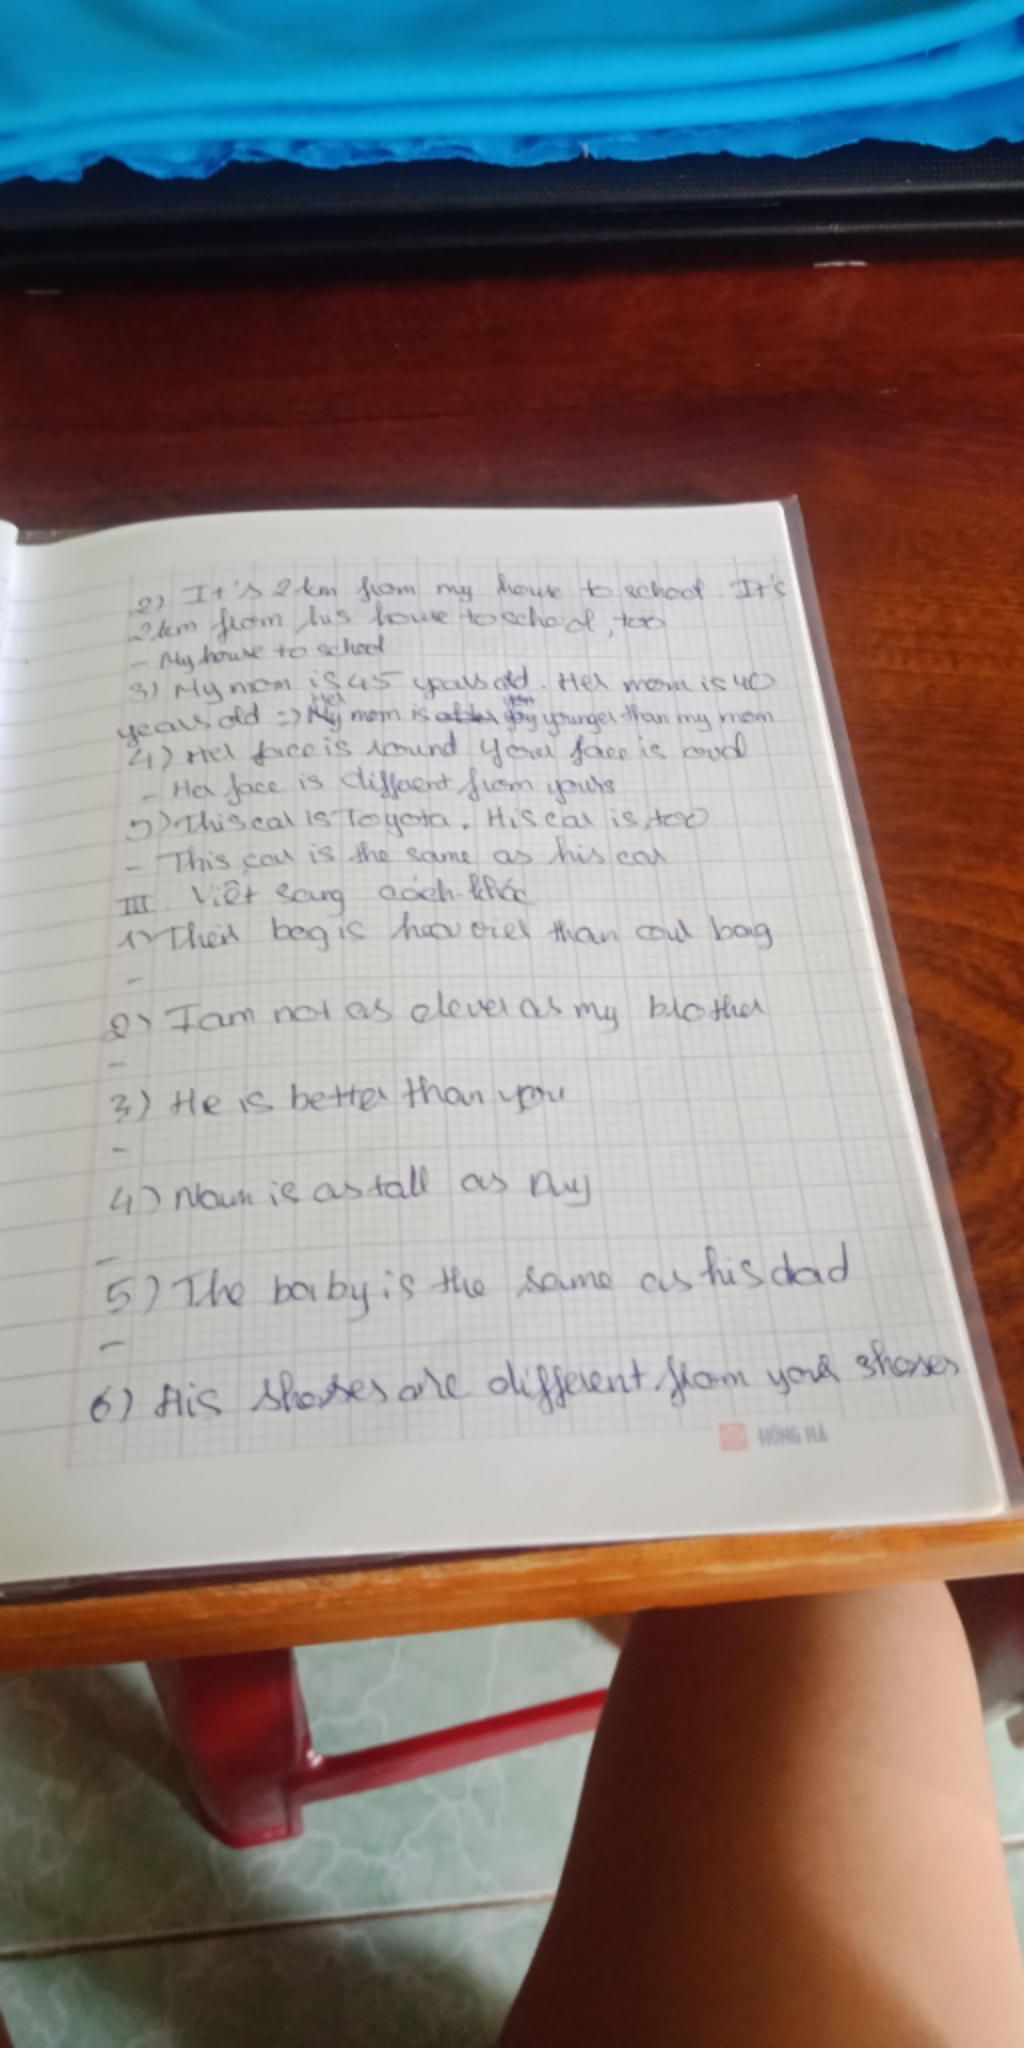 2) It's 2 km from my house to school. It's
2km from his house to school, too
- My house to school
3) My mom is 45 years old. Her mom is 40
years old => Her mom is younger than my mom
4) Her face is round your face is oval
- Her face is different from yours
5) This car is Toyota. His car is, too
- This car is the same as his car
III. Viết sang cách khác
1) Their bag is heavier than our bag
-
2) I am not as clever as my brother
-
3) He is better than you
-
4) Nam is as tall as Duy
-
5) The baby is the same as his dad
-
6) His shoses are different from your shoses
HỒNG HÀ